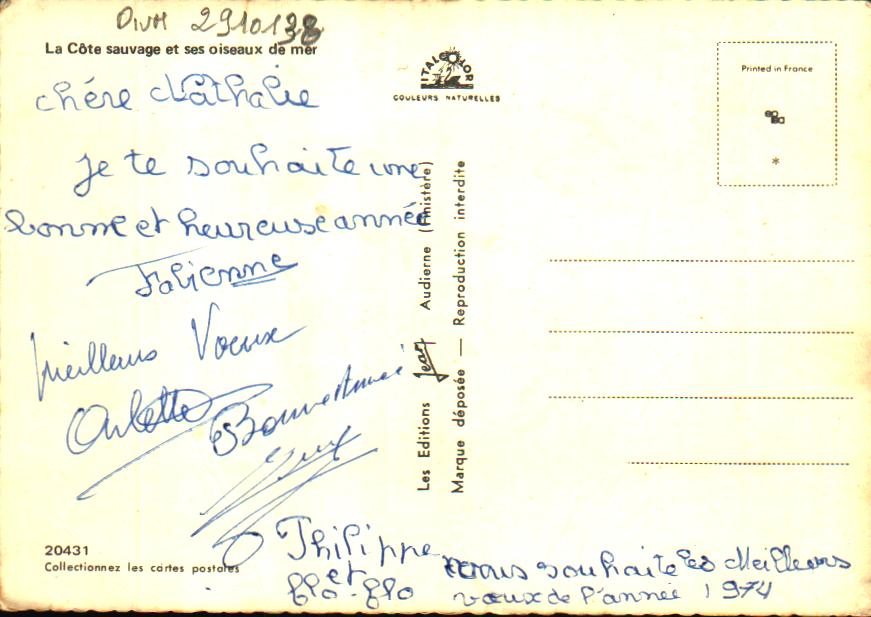 DIVH 2910138
La Côte sauvage et ses oiseaux de mer
chére Nathalie
je te souhaite une
bonne et heureuse année
Fabienne
Meilleurs Voeux
Arlette
Bonne Année
20431
Collectionnez les cartes postales
Philippe
et
flo-flo
vous souhaite les Meilleurs
voeux de l'année 1974
ITALCOLOR
COULEURS NATURELLES
Les Editions Jean Audierne (Finistère)
Marque déposée — Reproduction interdite
Printed in France
*